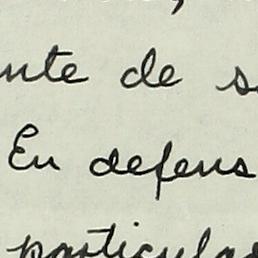 nte de s
En defens
particular